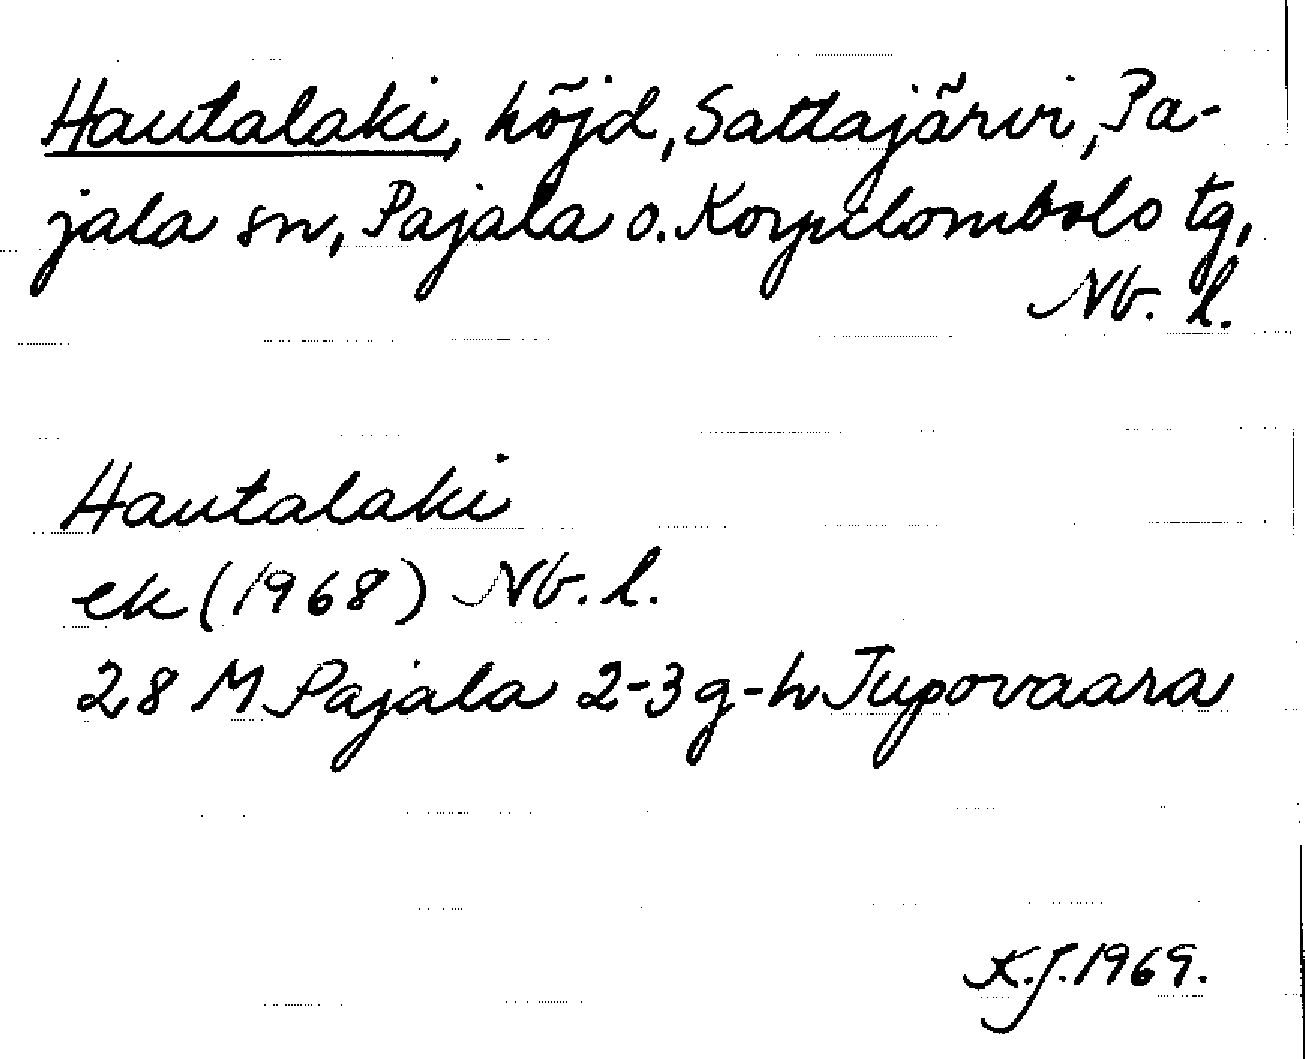 Hautalaki, höjd, Sattajärvi, Pa-
jala sn, Pajala o. Korpilombolo tg,
Nb. l.
Hautalaki
ek (1968) Nb. l.
28 M Pajala 2-3 g-h Jupovaara
K.J. 1969.